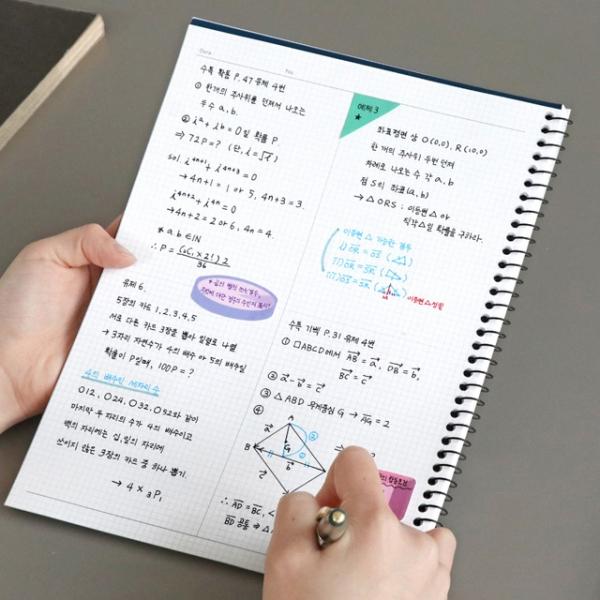 Date
No.
수특 확통 P.47 유제 4번
① 한개의 주사위를 던져서 나오는
두수 a, b.
② iᵃ + iᵇ = 0일 확률 P.
⇒ 72P = ? (단, i = √-1)
sol. i⁴ⁿ⁺¹ + i⁴ⁿ⁺³ = 0
→ 4n+1 = 1 or 5, 4n+3 = 3.
i⁴ⁿ⁺² + i⁴ⁿ = 0
→ 4n+2 = 2 or 6, 4n = 4.
* a, b ∈ IN
∴ P = (₂C₁ × 2!) 2 / 36
유제 6.
5장의 카드 1, 2, 3, 4, 5
서로 다른 카드 3장을 뽑아 일렬로 나열
→ 3자리 자연수가 4의 배수 or 5의 배수일
확률이 P일때, 100P = ?
4의 배수인 세자리 수
○12, ○24, ○32, ○52와 같이
마지막 두 자리의 수가 4의 배수이고
백의 자리에는 십, 일의 자리에
쓰이지 않은 3장의 카드 중 하나 뽑기.
→ 4 × ₃P₁
예제 3
★
좌표평면 상 O(0,0), R(10,0)
한 개의 주사위 두번 던져
차례로 나오는 수 각 a, b
점 S의 좌표 (a, b)
→ △ORS : 이등변△ or
직각△일 확률을 구하라.
이등변 △ 가능한 경우
i) OR = OS
ii) OR = SR
iii) OS = SR
수특 기벡 P.31 유제 4번
① □ABCD에서 AB = a, DB = b,
BC = c
② a - b = c
③ △ABD 무게중심 G → AG = 2
④
A
a
②
B
G
b
c
∴ AD = BC, <
BD 공통 ⇒ △